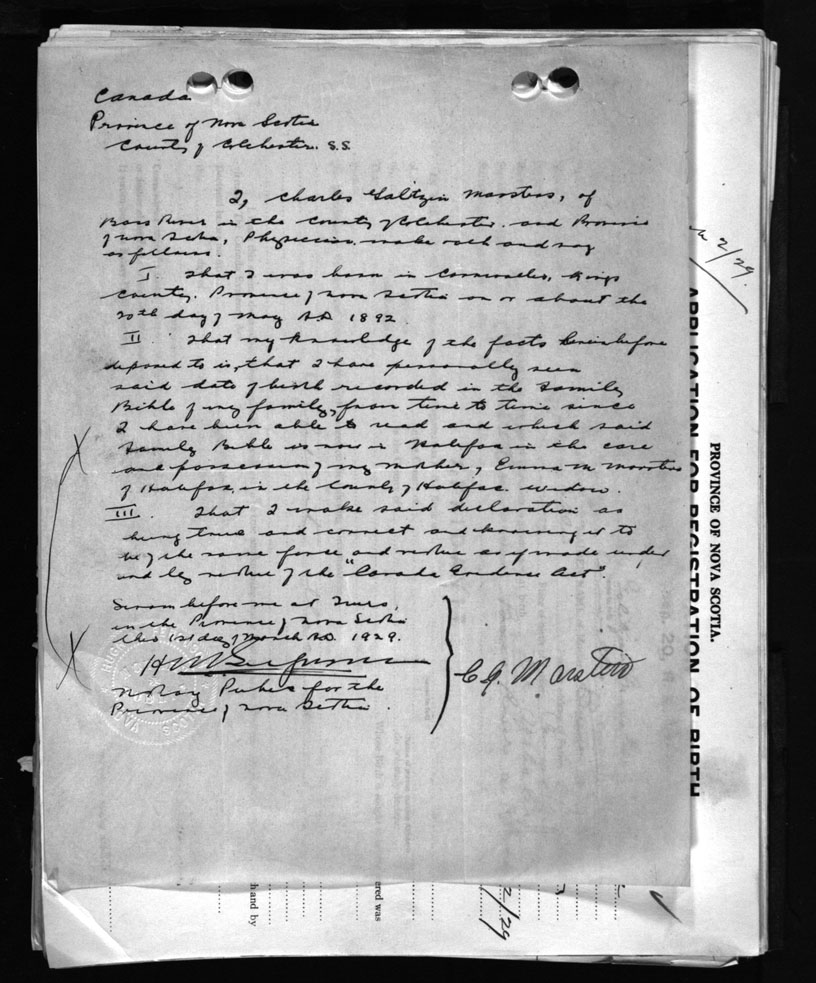 Canada
Province of Nova Scotia
County of Colchester. S.S.
I, Charles Marsters, of
Bass River in the County of Colchester and Province
of Nova Scotia, Physician, make oath and say
as follows.
I. That I was born in Cornwallis, Kings
County. Province of Nova Scotia on or about the
20th day of May A.D. 1892.
II That my knowledge of the facts hereinbefore
deposed to is, that I have personally seen
said date of birth recorded in the family
Bible of my family, from time to time since
I have been able to read and which said
family Bible is now in Halifax in the care
and possession of my mother, Emma M Marsters
of Halifax, in the County of Halifax. widow.
III. That I make said declaration as
being true and correct and knowing it to
be of the same force and virtue as if made under
and by virtue of the "Canada Evidence Act".
Sworn before me at Truro,
in the Province of Nova Scotia
this 1st day of March A.D. 1929.
C. G. Marsters
Notary Public for the
Province of Nova Scotia.
2/29.
PROVINCE OF NOVA SCOTIA.
APPLICATION FOR REGISTRATION OF BIRTH
hand by
ered was
2/29